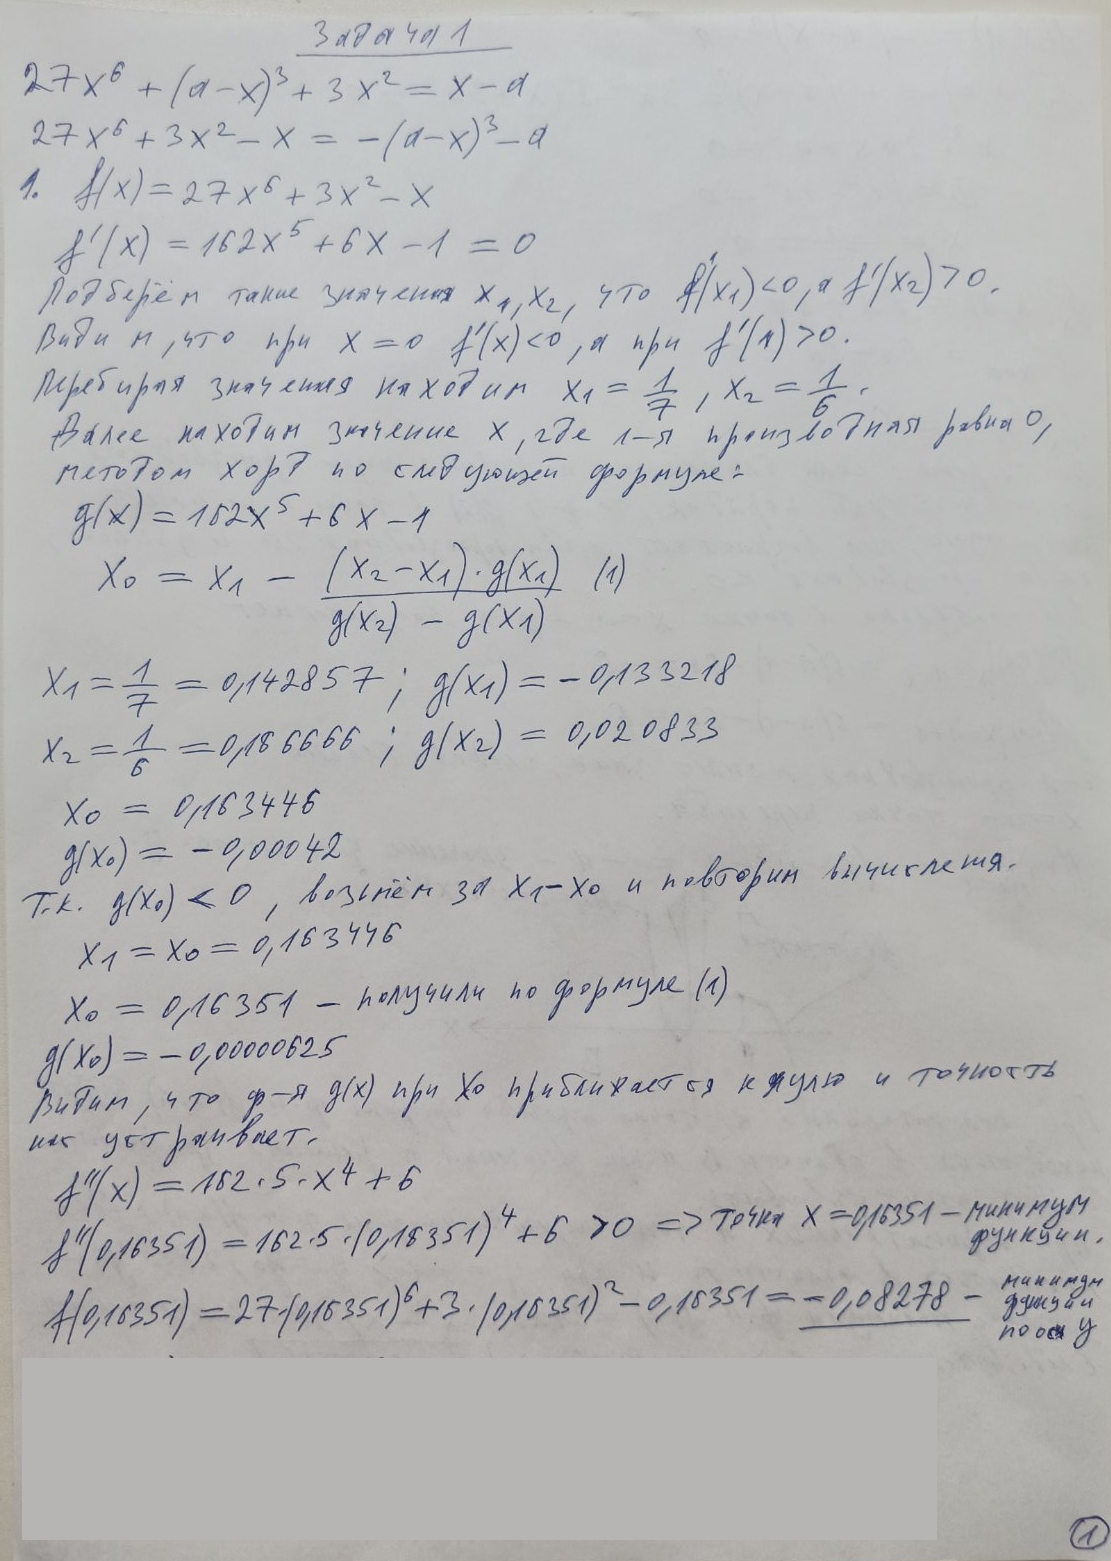 Задача 1
27x⁶ + (a-x)³ + 3x² = x - a
27x⁶ + 3x² - x = -(a-x)³ - a
1. f(x) = 27x⁶ + 3x² - x
f'(x) = 162x⁵ + 6x - 1 = 0
Подберём такие значения x₁, x₂, что f'(x₁) < 0, а f'(x₂) > 0.
Видим, что при x = 0 f'(x) < 0, а при f'(1) > 0.
Перебирая значения находим x₁ = 1/7, x₂ = 1/6.
Далее находим значение x, где 1-я производная равна 0,
методом хорд по следующей формуле:
g(x) = 162x⁵ + 6x - 1
x₀ = x₁ - (x₂ - x₁)·g(x₁) / g(x₂) - g(x₁) (1)
x₁ = 1/7 = 0,142857; g(x₁) = -0,133218
x₂ = 1/6 = 0,186666; g(x₂) = 0,020833
x₀ = 0,163446
g(x₀) = -0,00042
Т.к. g(x₀) < 0, возьмём за x₁ - x₀ и повторим вычисления.
x₁ = x₀ = 0,163446
x₀ = 0,16351 - получили по формуле (1)
g(x₀) = -0,00000625
Видим, что ф-я g(x) при x₀ приближается к нулю и точность
нас устраивает.
f''(x) = 162·5·x⁴ + 6
f''(0,16351) = 162·5·(0,16351)⁴ + 6 > 0 => точка x = 0,16351 - минимум
функции.
f(0,16351) = 27·(0,16351)⁶ + 3·(0,16351)² - 0,16351 = -0,08278 - минимум
функции
по оси y
1